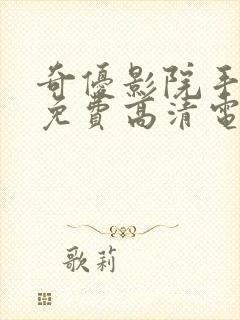 奇優影院手
免費高清電
歌莉